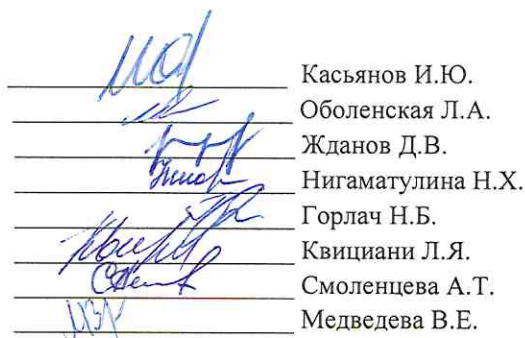 Касьянов И.Ю.
Оболенская Л.А.
Жданов Д.В.
Нигаматулина Н.Х.
Горлач Н.Б.
Квициани Л.Я.
Смоленцева А.Т.
Медведева В.Е.